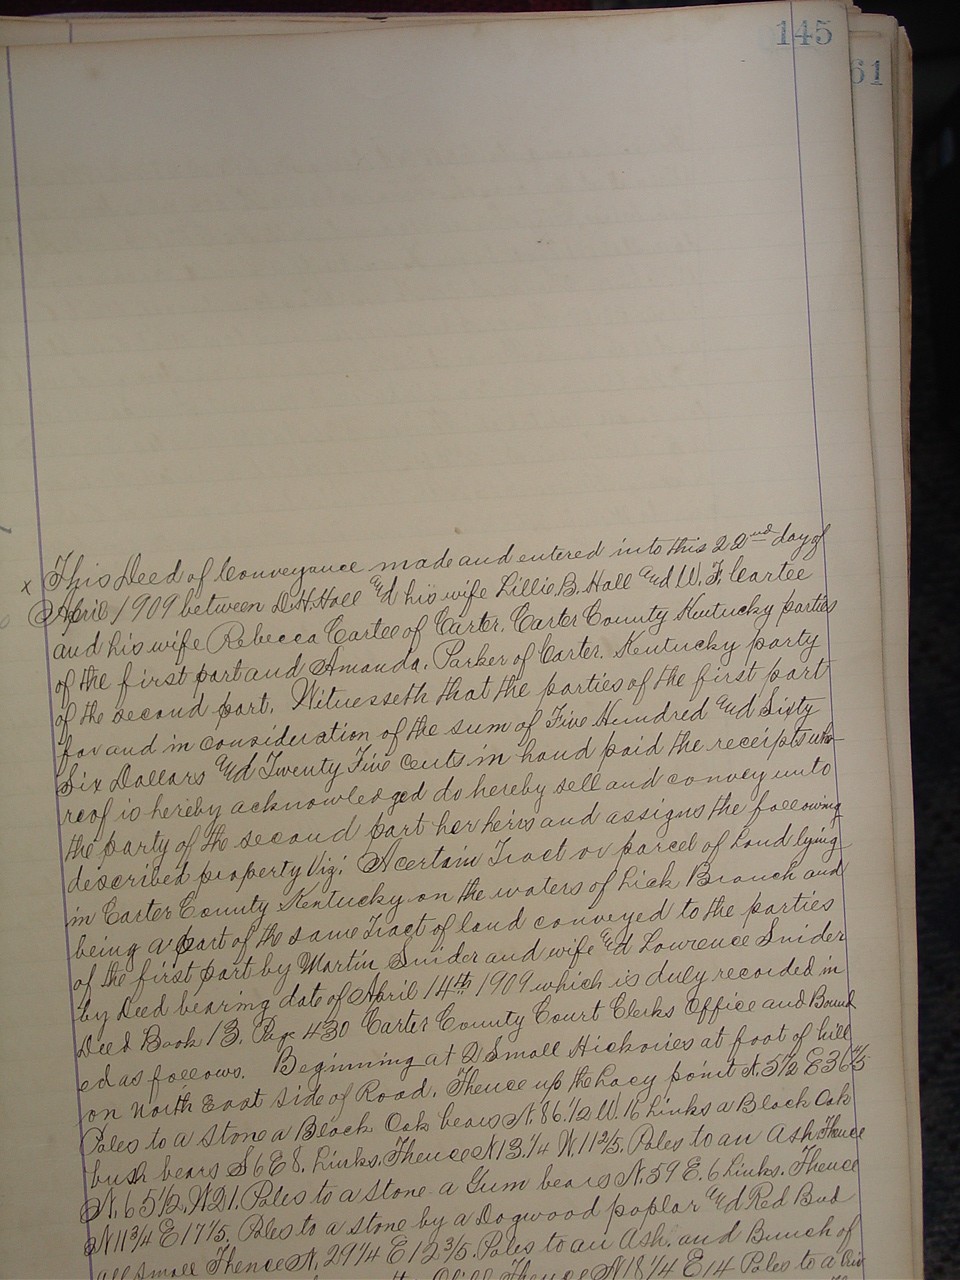 145
61
x This Deed of Conveyance made and entered into this 22nd day of
April 1909 between D. H. Hall and his wife Lillie B. Hall and W. F. Cartee
and his wife Rebecca Cartee of Carter, Carter County Kentucky parties
of the first part and Amanda. Parker of Carter. Kentucky party
of the second part. Witnesseth that the parties of the first part
for and in consideration of the sum of Five Hundred and Sixty
Six Dollars and Twenty Five cents in hand paid the receipts whe-
reof is hereby acknowledged do hereby sell and convey unto
the party of the second part her heirs and assigns the following
described property Viz: A certain Tract or parcel of Land lying
in Carter County Kentucky on the waters of Lick Branch and
being a part of the same Tract of land conveyed to the parties
of the first part by Martin Snider and wife and Lawrence Snider
by Deed bearing date of April 14th 1909 which is duly recorded in
Deed Book 13. Page 430 Carter County Court Clerks Office and Bound
ed as follows. Beginning at 2 Small Hickories at foot of hill
on North East side of Road. Thence up the Lacy point N. 5 1/2 E 36 4/5
Poles to a Stone a Black Oak bears N. 86. 1/2 W. 16 Links a Black Oak
bush bears S 6 E 8. Links. Thence N 13. 1/4 W. 11 2/5. Poles to an Ash Thence
N. 6 5 1/2. W 21. Poles to a Stone a Gum bears N. 59 E. 6 Links. Thence
N 11 3/4 E 17 1/5. Poles to a stone by a Dogwood poplar and Red Bud
all small Thence N. 29 1/4 E 12 3/5. Poles to an Ash. and Bunch of
Thence N 18 1/4 E 14 Poles to a